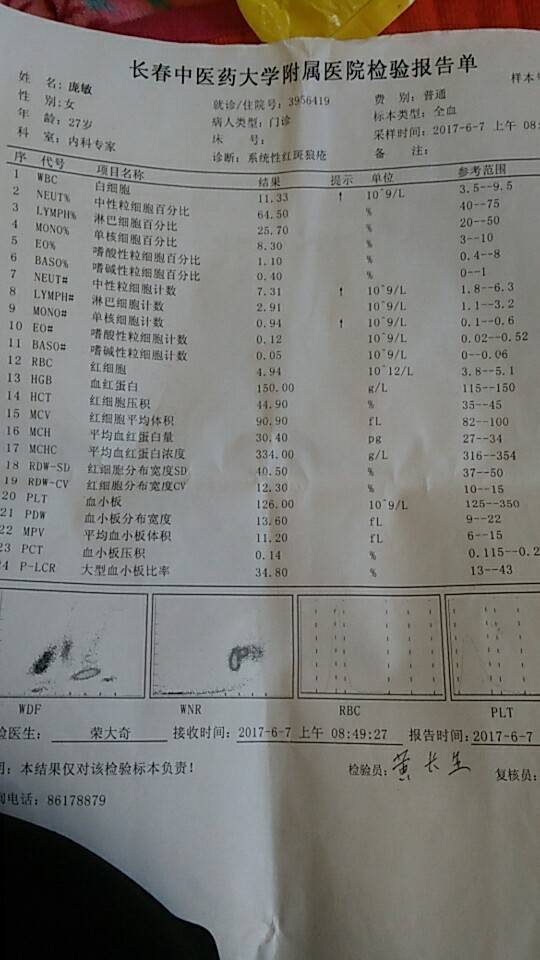 长春中医药大学附属医院检验报告单
姓 名: 庞敏 样本
性 别:女 就诊/住院号: 3956419 费 别: 普通
年 龄: 27岁 病人类型: 门诊 标本类型: 全血
科 室: 内科专家 床 号: 采样时间: 2017-6-7 上午 08
诊断: 系统性红斑狼疮 备 注:
序 代号 项目名称 结果 提示 单位 参考范围
1 WBC 白细胞 11.33 ↑ 10^9/L 3.5--9.5
2 NEUT% 中性粒细胞百分比 64.50 % 40--75
3 LYMPH% 淋巴细胞百分比 25.70 % 20--50
4 MONO% 单核细胞百分比 8.30 % 3--10
5 EO% 嗜酸性粒细胞百分比 1.10 % 0.4--8
6 BASO% 嗜碱性粒细胞百分比 0.40 % 0--1
7 NEUT# 中性粒细胞计数 7.31 ↑ 10^9/L 1.8--6.3
8 LYMPH# 淋巴细胞计数 2.91 10^9/L 1.1--3.2
9 MONO# 单核细胞计数 0.94 ↑ 10^9/L 0.1--0.6
10 EO# 嗜酸性粒细胞计数 0.12 10^9/L 0.02--0.52
11 BASO# 嗜碱性粒细胞计数 0.05 10^9/L 0--0.06
12 RBC 红细胞 4.94 10^12/L 3.8--5.1
13 HGB 血红蛋白 150.00 g/L 115--150
14 HCT 红细胞压积 44.90 % 35--45
15 MCV 红细胞平均体积 90.90 fL 82--100
16 MCH 平均血红蛋白量 30.40 pg 27--34
17 MCHC 平均血红蛋白浓度 334.00 g/L 316--354
18 RDW-SD 红细胞分布宽度SD 40.50 % 37--50
19 RDW-CV 红细胞分布宽度CV 12.30 % 10--15
20 PLT 血小板 126.00 10^9/L 125--350
21 PDW 血小板分布宽度 13.60 fL 9--22
22 MPV 平均血小板体积 11.20 fL 6--15
23 PCT 血小板压积 0.14 % 0.115--0.2
24 P-LCR 大型血小板比率 34.80 % 13--43
WDF WNR RBC PLT
检医生: 荣大奇 接收时间: 2017-6-7 上午 08:49:27 报告时间: 2017-6-7
明: 本结果仅对该检验标本负责! 检验员: 黄长生 复核员:
询电话: 86178879